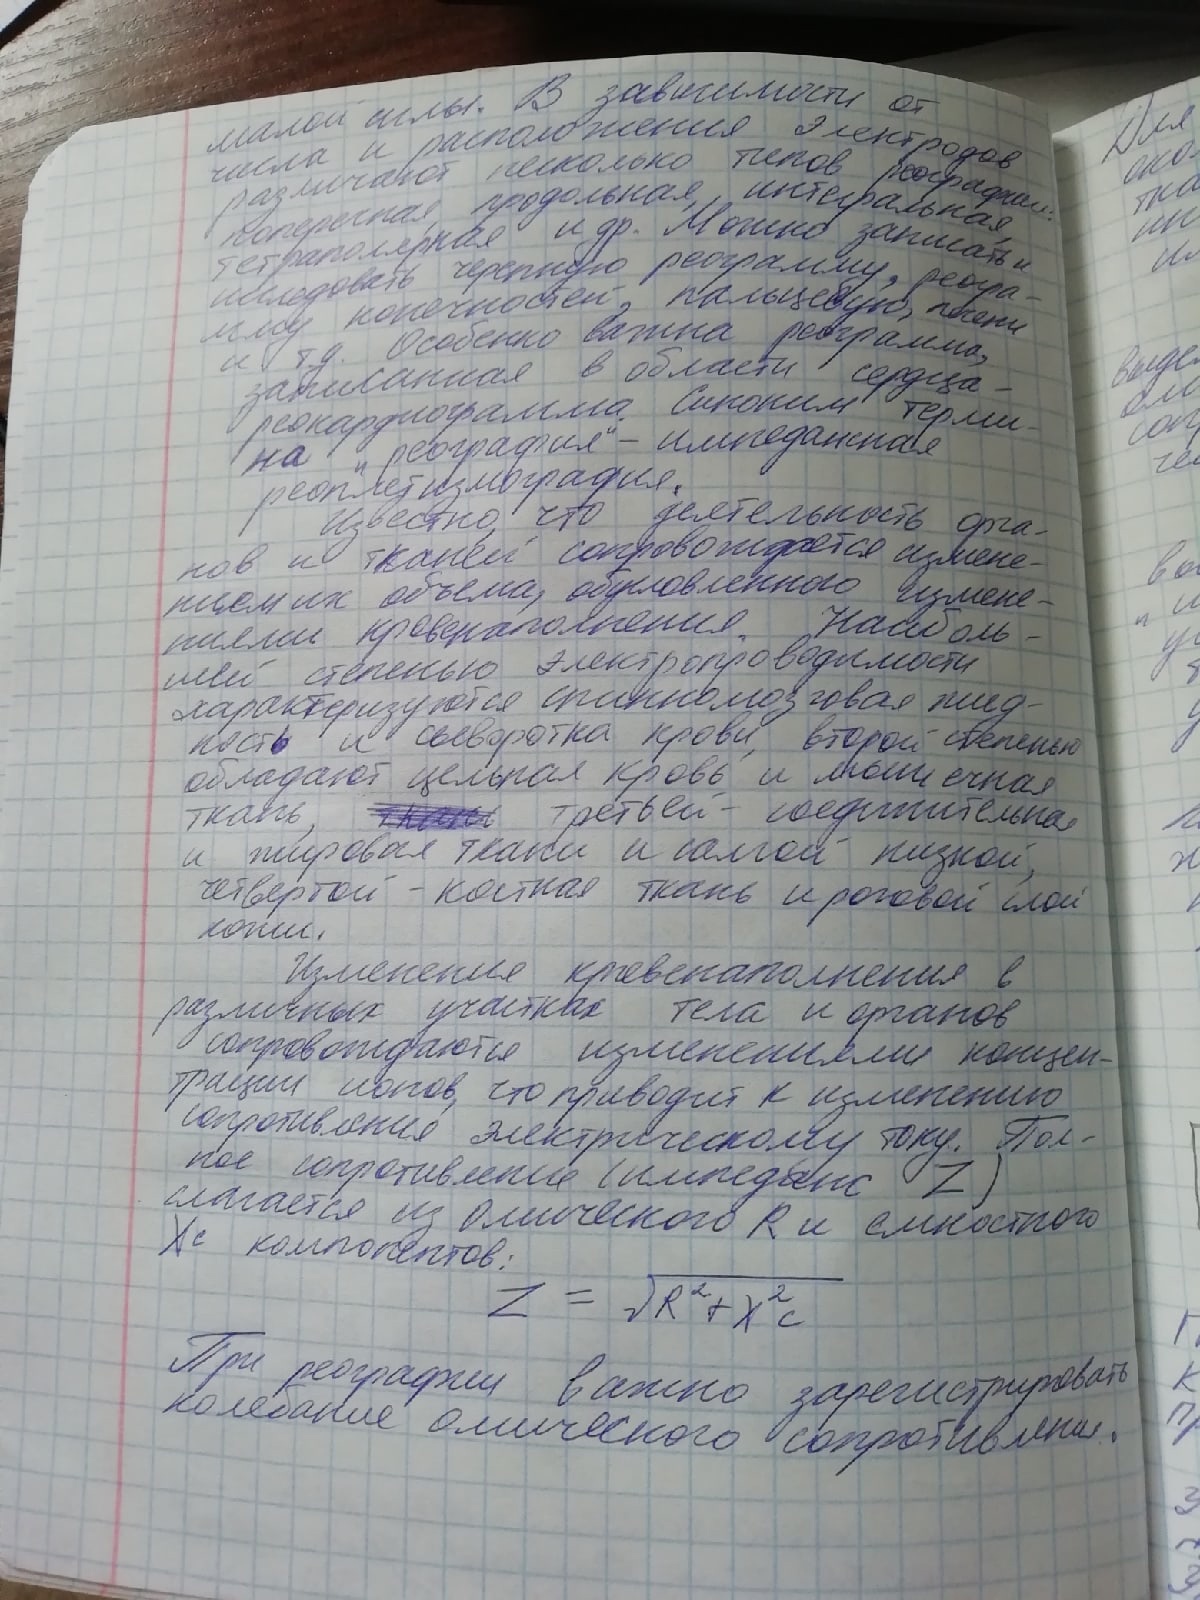 малой силы. В зависимости от
числа и расположения электродов
различают несколько типов реографии:
поперечная, продольная, интегральная,
тетраполярная и др. Можно записать и
исследовать черепную реограмму, реогра-
мму конечностей, пальцевую, печени
и т.д. Особенно важна реограмма,
записанная в области сердца -
реокардиограмма. Синоним терми-
на "реография" - импедансная
реоплетизмография.
Известно, что деятельность орга-
нов и тканей сопровождается измене-
нием их объема, обусловленного измене-
ниями кровенаполнения. Наиболь-
шей степенью электропроводимости
характеризуются спинномозговая жид-
кость и сыворотка крови, второй степенью
обладают цельная кровь и мышечная
ткань, третьей - соединительная
и жировая ткани и самой низкой,
четвертой - костная ткань и роговой слой
кожи.
Изменения кровенаполнения в
различных участках тела и органов
сопровождаются изменениями концен-
трации ионов, что приводит к изменению
сопротивления электрическому току. Пол-
ное сопротивление (импеданс Z)
слагается из омического R и емкостного
Xc компонентов:
Z = √R²+X²c
При реографии важно зарегистрировать
колебание омического сопротивления.
Для
вода